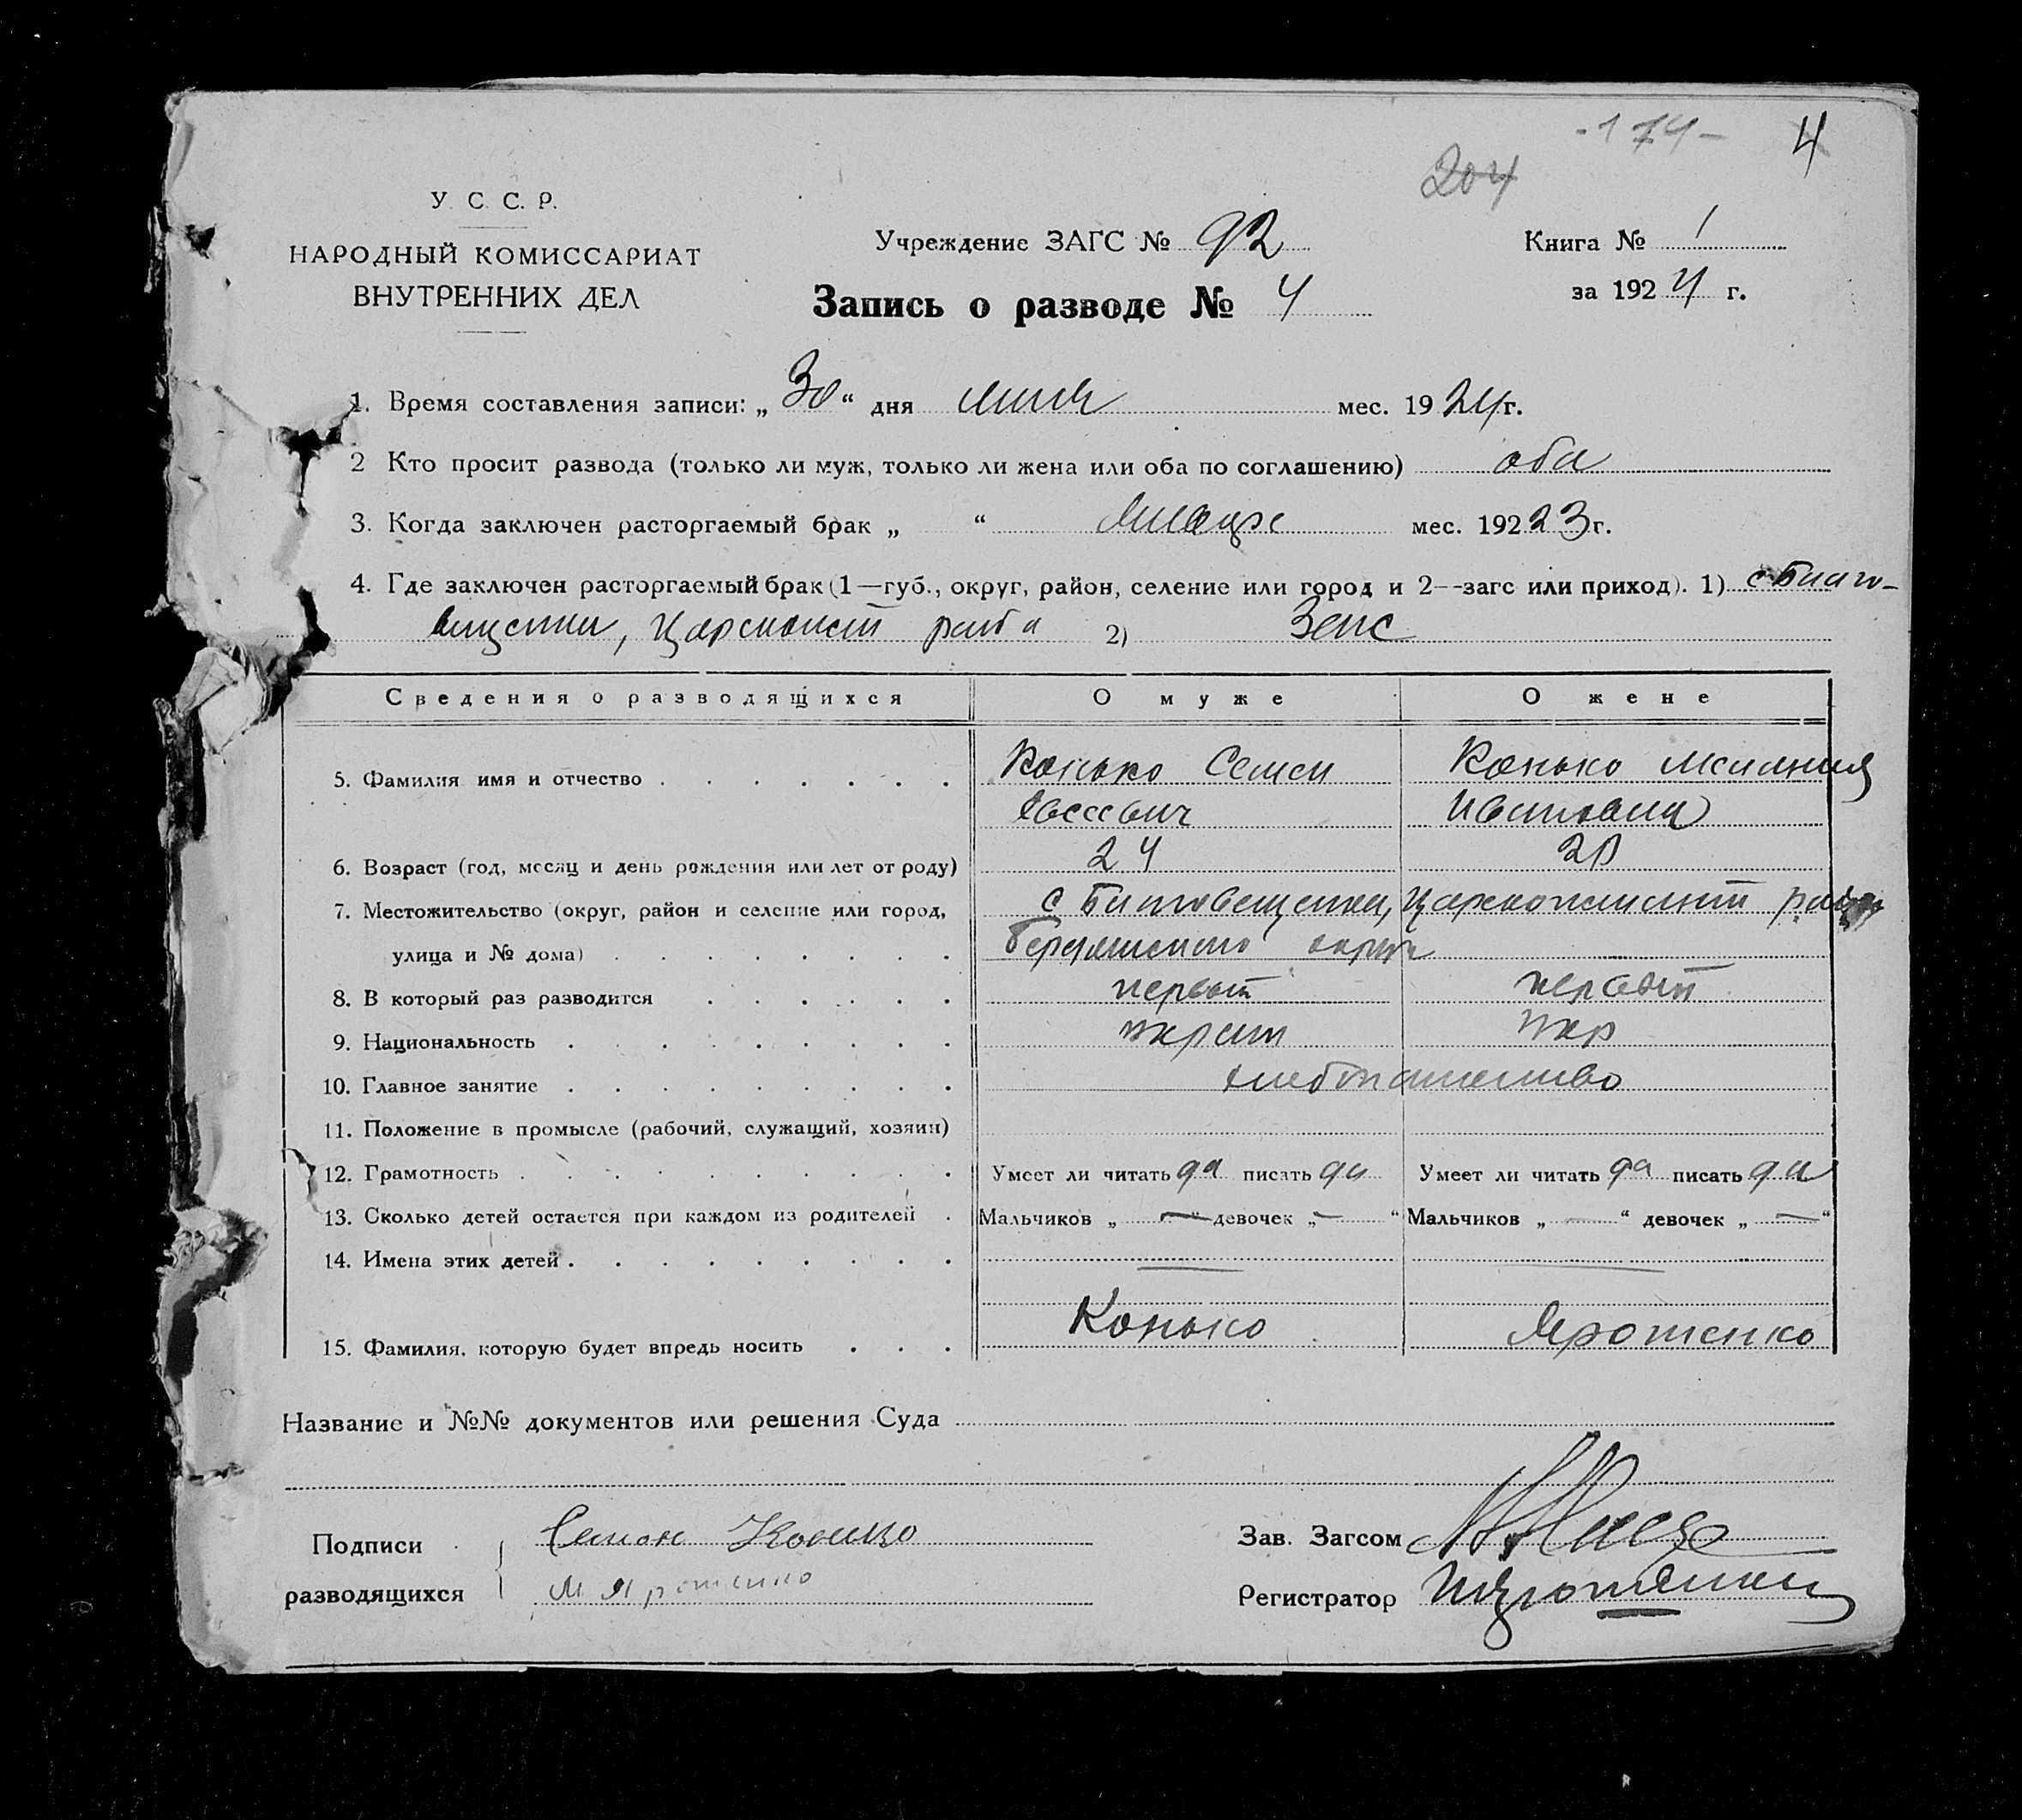 - 174 - 4
204
У. С. С. Р.
НАРОДНЫЙ КОМИССАРИАТ
ВНУТРЕННИХ ДЕЛ
Учреждение ЗАГС № 92
Книга № 1
Запись о разводе № 4
за 1924 г.
1. Время составления записи: „ 30 “ дня мес. 1924 г.
2 Кто просит развода (только ли муж, только ли жена или оба по соглашению) оба
3. Когда заключен расторгаемый брак „ “ мес. 192 23 г.
4. Где заключен расторгаемый брак (1—губ., округ, район, селение или город и 2--загс или приход). 1) с Благо-
вещенка, 2) Загс
Сведения о разводящихся О муже О жене
5. Фамилия имя и отчество Конько Семен Конько Мелания
Евсеевич Ивановна
6. Возраст (год, месяц и день рождения или лет от роду) 24
7. Местожительство (округ, район и селение или город, с Благовещенка,
улица и № дома) округа
8. В который раз разводится первый первый
9. Национальность укр
10. Главное занятие хлебопашество
11. Положение в промысле (рабочий, служащий, хозяин)
12. Грамотность Умеет ли читать да писать да Умеет ли читать да писать да
13. Сколько детей остается при каждом из родителей Мальчиков „ — “ девочек „ — “ Мальчиков „ — “ девочек „ — “
14. Имена этих детей — —
15. Фамилия, которую будет впредь носить Конько Ярошенко
Название и №№ документов или решения Суда
Подписи Семон Конько
разводящихся М Ярошенко
Зав. Загсом
Регистратор